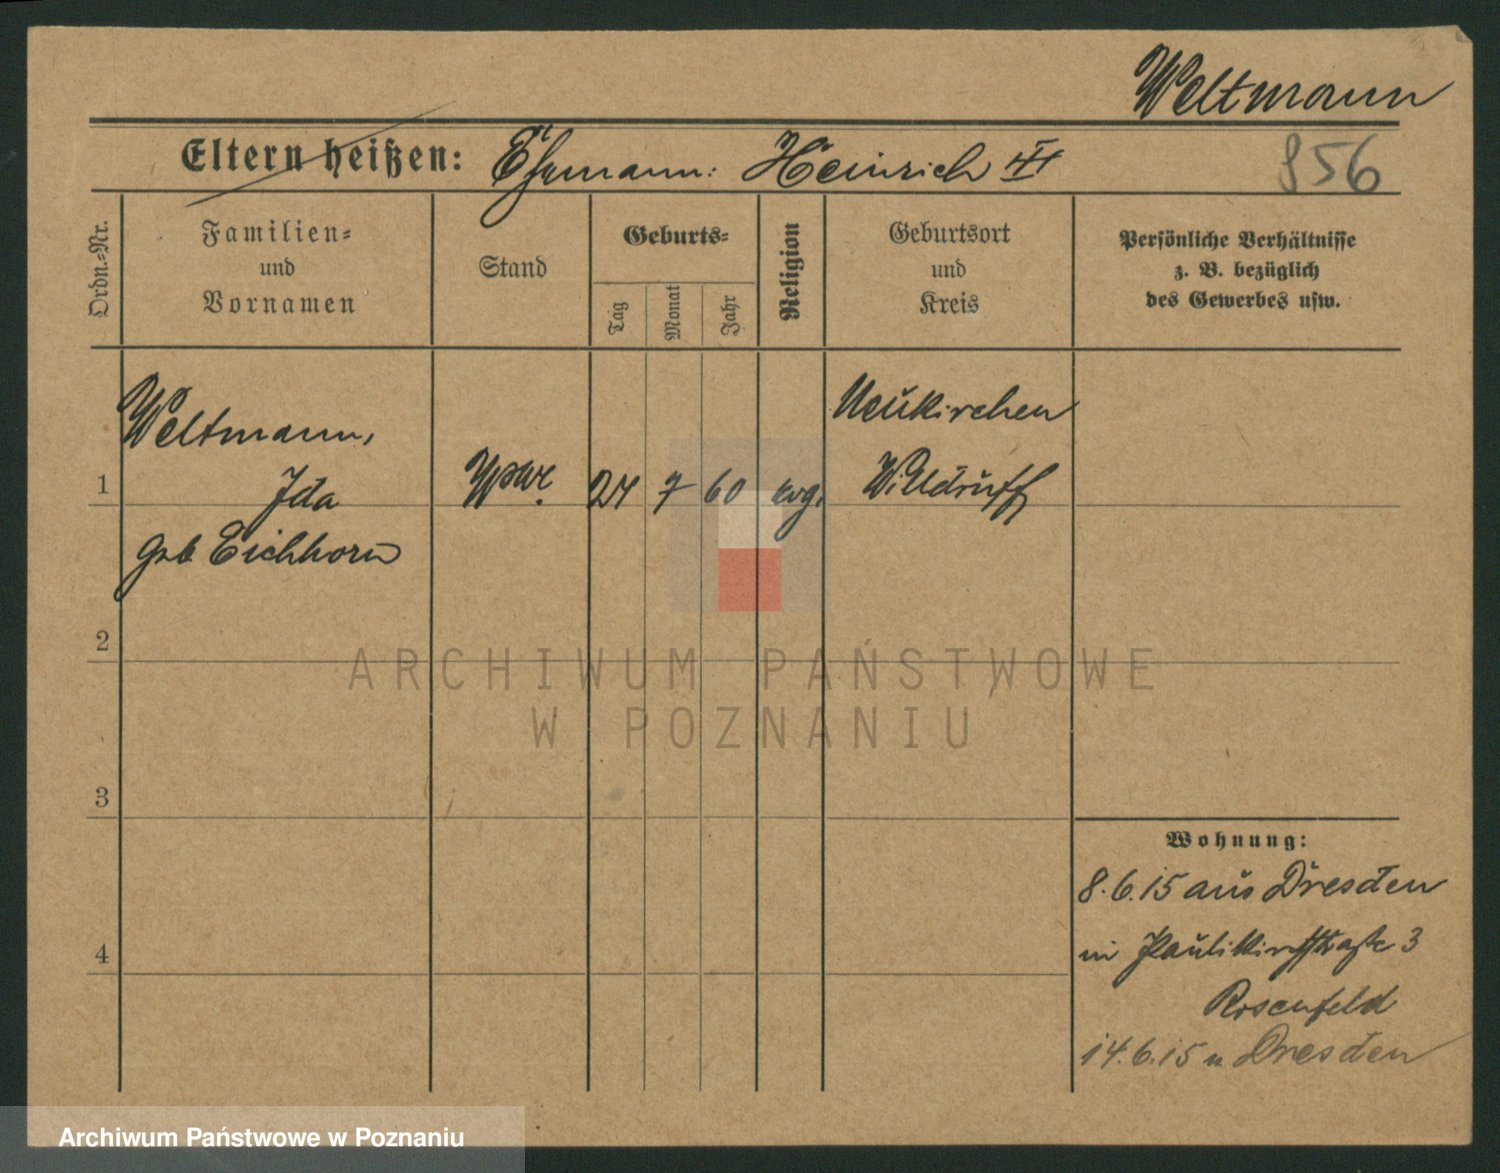 Weltmann
Eltern heißen: Ehemann: Heinrich
856
Ordn.-Nr.
Familien-
und
Vornamen
Stand
Geburts-
Tag
Monat
Jahr
Religion
Geburtsort
und
Kreis
Persönliche Verhältnisse
z. B. bezüglich
des Gewerbes usw.
Weltmann,
1 Ida
geb Eichhorn
24 7 60 evg.
Neukirchen
Wilsdruff
2
3
4
Wohnung:
8.6.15 aus Dresden
in Paulikirchstraße 3
Rosenfeld
14.6.15 n Dresden
ARCHIWUM PAŃSTWOWE
W POZNANIU
Archiwum Państwowe w Poznaniu